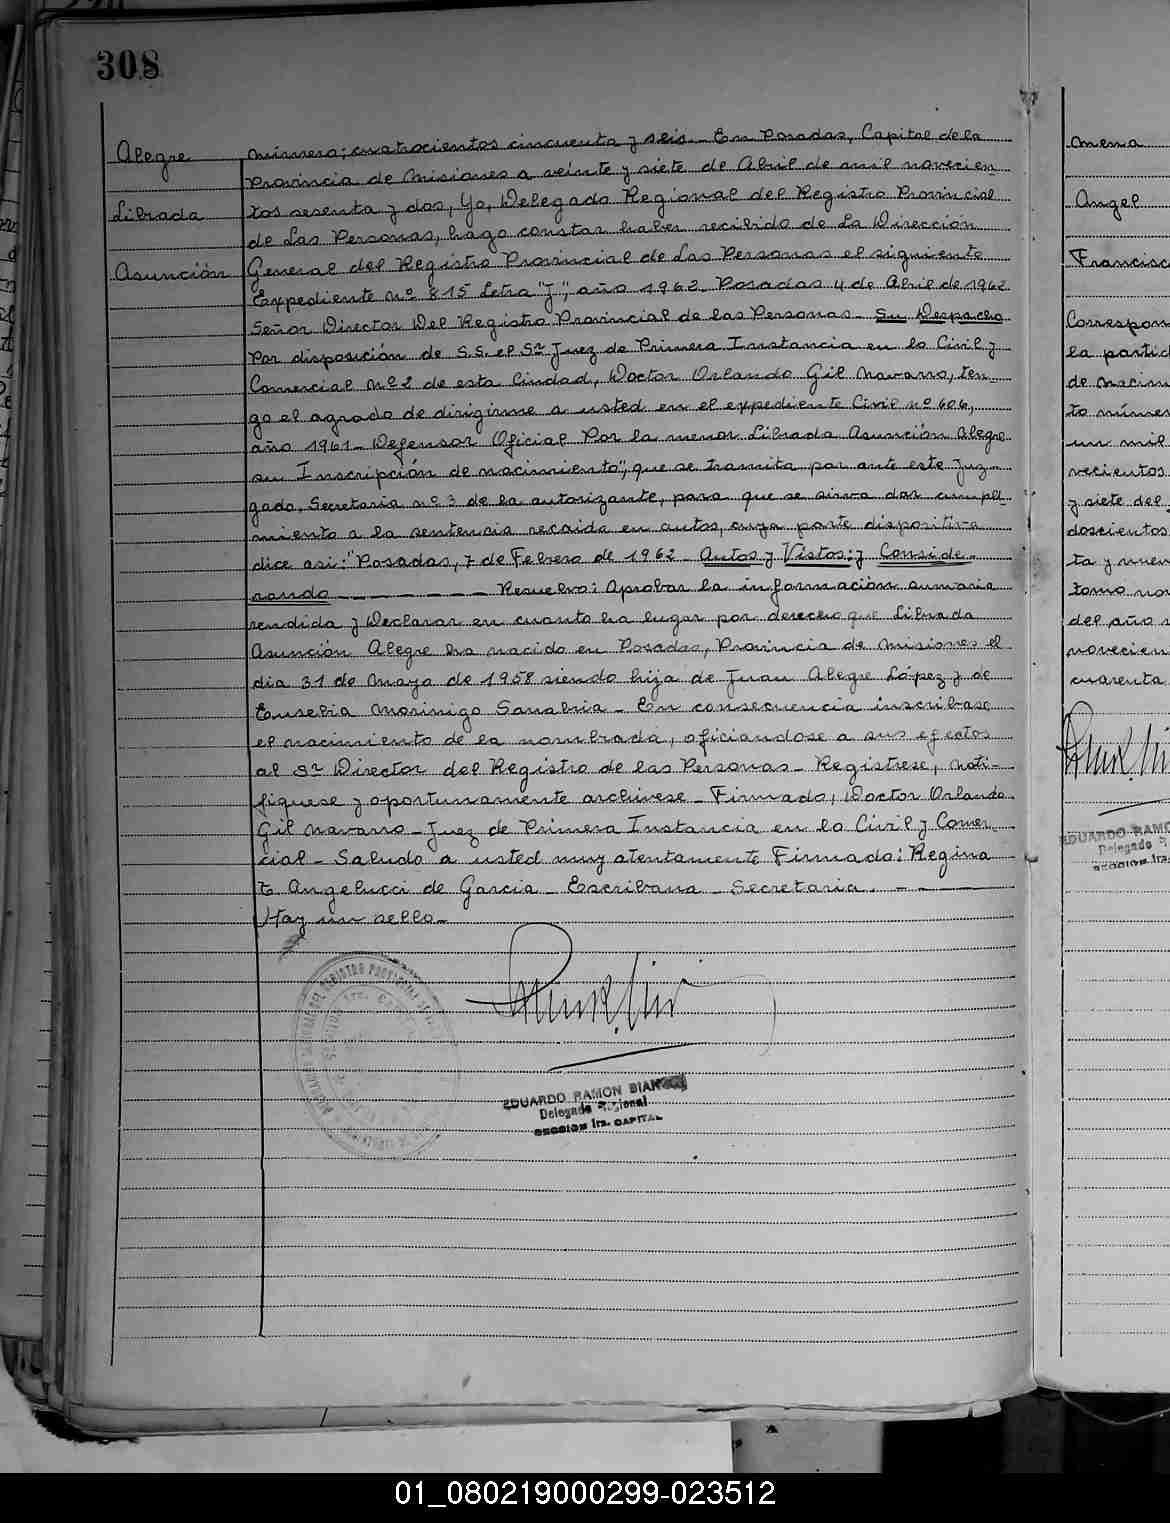 308
Alegre
Librada
Asunción
número: cuatrocientos cincuenta y seis. En Posadas, Capital de la
Provincia de Misiones a veinte y siete de Abril de mil novecien
tos sesenta y dos, Yo, Delegado Regional del Registro Provincial
de Las Personas, hago constar haber recibido de La Dirección
General del Registro Provincial de Las Personas el siguiente
Expediente nº 815 Letra "J", año 1962. Posadas 4 de Abril de 1962
Señor Director Del Registro Provincial de las Personas - Su Despacho
Por disposición de S.S. el Sr Juez de Primera Instancia en lo Civil y
Comercial nº 2 de esta Ciudad, Doctor Orlando Gil Navarro, ten-
go el agrado de dirigirme a usted en el expediente Civil nº 606,
año 1961 - Defensor Oficial Por la menor Librada Asunción Alegre
su Inscripción de nacimiento", que se tramita por ante este Juz-
gado, Secretaria nº 3 de la autorizante, para que se sirva dar cumpli-
miento a la sentencia recaida en autos, cuya parte dispositiva
dice asi: "Posadas, 7 de Febrero de 1962 - Autos y Vistos: y Conside-
rando - - - - - - - Resuelvo: Aprobar la información sumaria
rendida y Declarar en cuanto ha lugar por derecho que Librada
Asunción Alegre ha nacido en Posadas, Provincia de Misiones el
dia 31 de Mayo de 1958 siendo hija de Juan Alegre López y de
Eusebia Morinigo Sanabria - En consecuencia inscribase
el nacimiento de la nombrada, oficiandose a sus efectos
al Sr Director del Registro de las Personas - Registrese, noti-
fiquese y oportunamente archivese - Firmado, Doctor Orlando
Gil Navarro - Juez de Primera Instancia en lo Civil y Comer
cial - Saludo a usted muy atentamente Firmado: Regina
T. Angelucci de Garcia - Escribana - Secretaria. - - -
Hay un sello -
EDUARDO RAMON
Delegado Regional
SECCION 1ra. CAPITAL
mena
Angel
Francisc
Correspon
la partid
de nacim
to númer
un mil
vecientos
y siete del
doscientos
ta y nuev
tomo no
del año
novecien
cuarenta
EDUARDO RAMO
Delegado
SECCION 1ra.
01_080219000299-023512